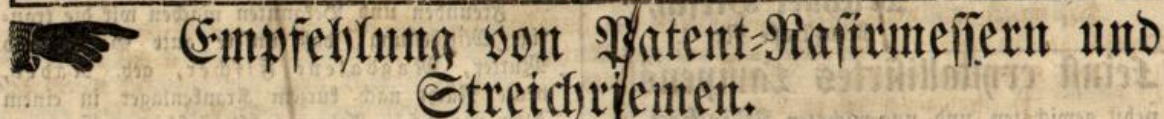 Empfehlung von Patent-Rasirmessern und
Streichriemen.